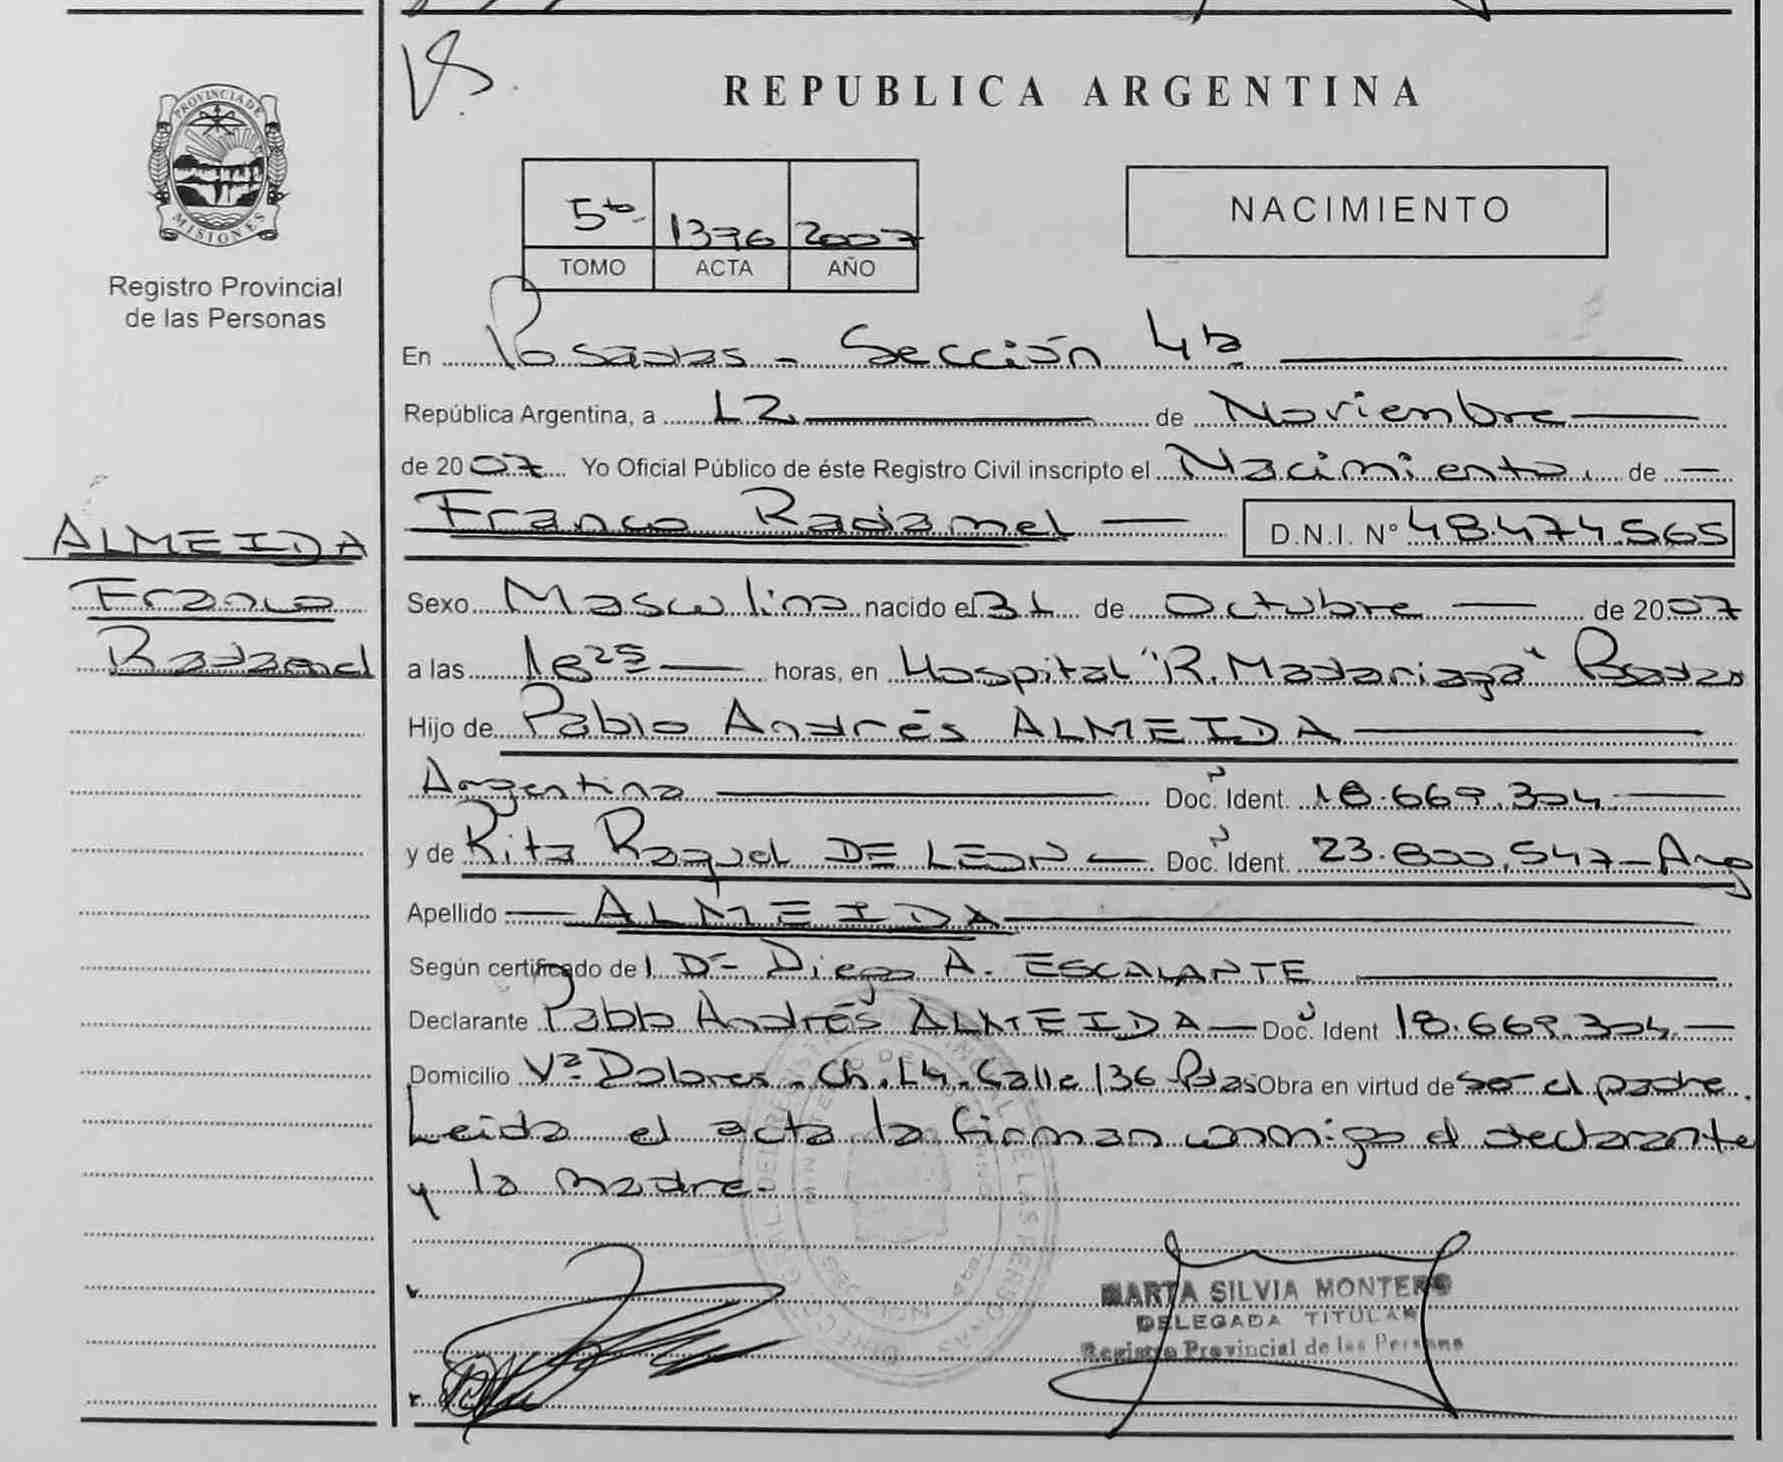 V.S.
PROVINCIA DE
MISIONES
Registro Provincial
de las Personas
ALMEIDA
Franco
Radamel
REPUBLICA ARGENTINA
5to 1376 2007
TOMO ACTA AÑO
NACIMIENTO
En Posadas - Sección 4ta
República Argentina, a 12 de Noviembre
de 2007 Yo Oficial Público de éste Registro Civil inscripto el Nacimiento de
Franco Radamel D.N.I. N° 48.474.565
Sexo Masculino nacido el 31 de Octubre de 2007
a las 18 25 horas, en Hospital "R. Madariaga" Posadas
Hijo de Pablo Andrés ALMEIDA
Argentina Doc. Ident. 18.669.304
y de Rita Raquel DE LEON Doc. Ident. 23.800.547 - Arg
Apellido ALMEIDA
Según certificado del Dr Diego A. ESCALANTE
Declarante Pablo Andrés ALMEIDA Doc. Ident 18.669.304
Domicilio Va Dolores - Ch. 14 - Calle 136 - Pdas Obra en virtud de ser el padre.
Leida el acta la firman conmigo el declarante
y la madre.-
MARTA SILVIA MONTERO
DELEGADA TITULAR
Registro Provincial de las Persona